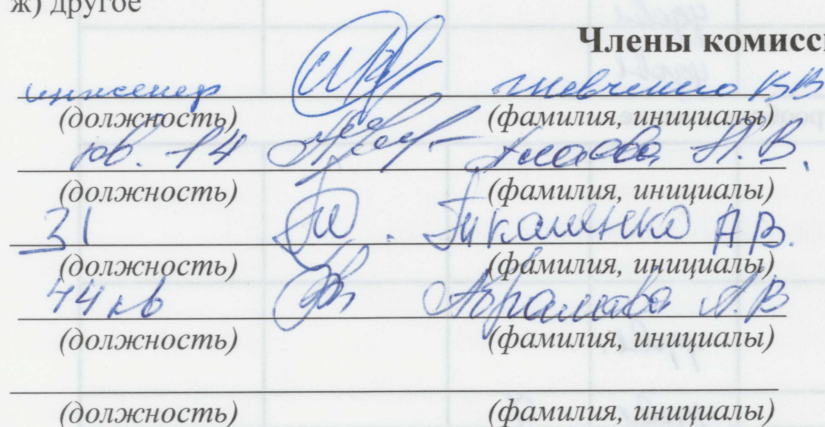 ж) другое
Члены комисс
инженер Шевченко В В
(должность) (фамилия, инициалы)
кв. 14 А. В.
(должность) (фамилия, инициалы)
31 Тикаленко А.В.
(должность) (фамилия, инициалы)
44 кв Абрамова А.В
(должность) (фамилия, инициалы)
(должность) (фамилия, инициалы)